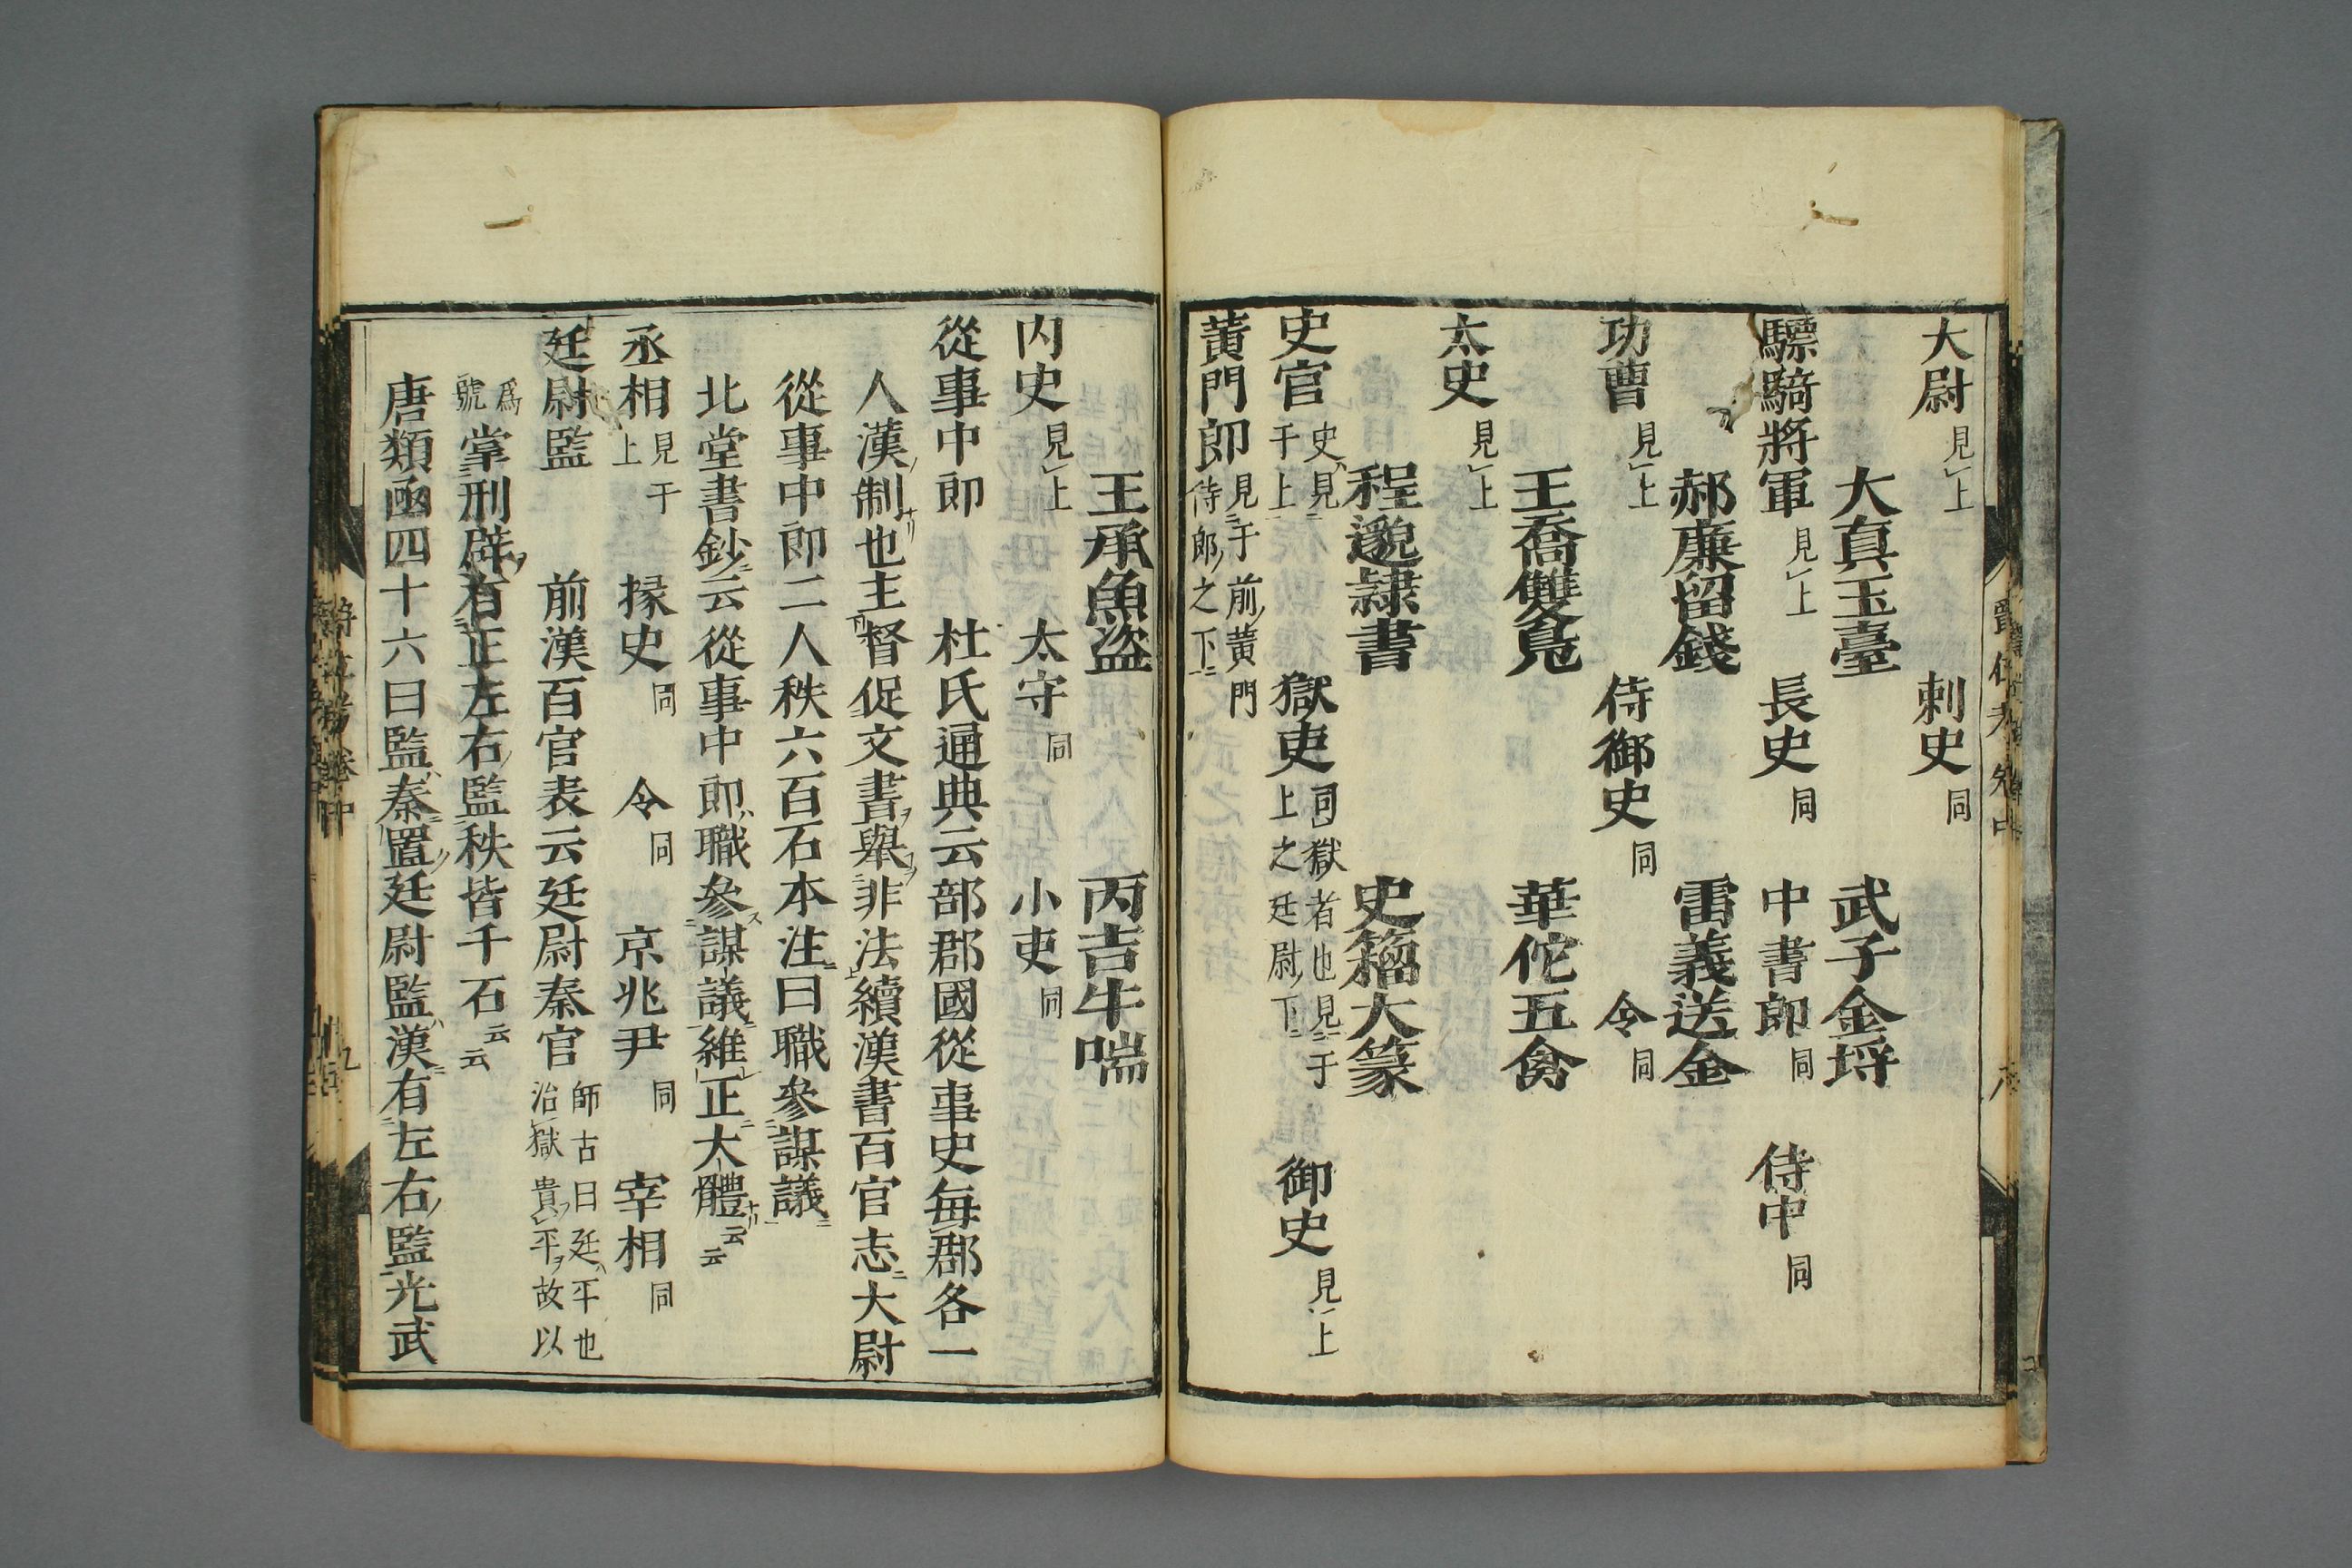 大尉見上　刺史同
大真玉臺　武子金埒
驃騎將軍見上　長史同　中書郎同　侍中同
郝廉留錢　雷義送金
功曹見上　侍御史同　令同
王喬雙鳧　華佗五禽
太史見上
程邈隷書　史籀大篆
史官史見于上　獄吏司獄者也見于上之廷尉下　御史見上
黄門郎見于前黄門侍郎之下
王承魚盗　丙吉牛喘
内史見上　太守同　小吏同
從事中郎　杜氏通典云部郡國從事史每郡各一
人漢制也主督促文書舉非法續漢書百官志大尉
從事中郎二人秩六百石本注曰職參謀議
北堂書鈔云從事中郎職參謀議維正大體云云
丞相見于上　掾史同　令同　京兆尹同　宰相同
廷尉監　前漢百官表云廷尉秦官師古曰廷平也治獄貴平故以
爲號掌刑辟有正左右監秩皆千石云云
唐類函四十六曰監秦置廷尉監漢有左右監光武